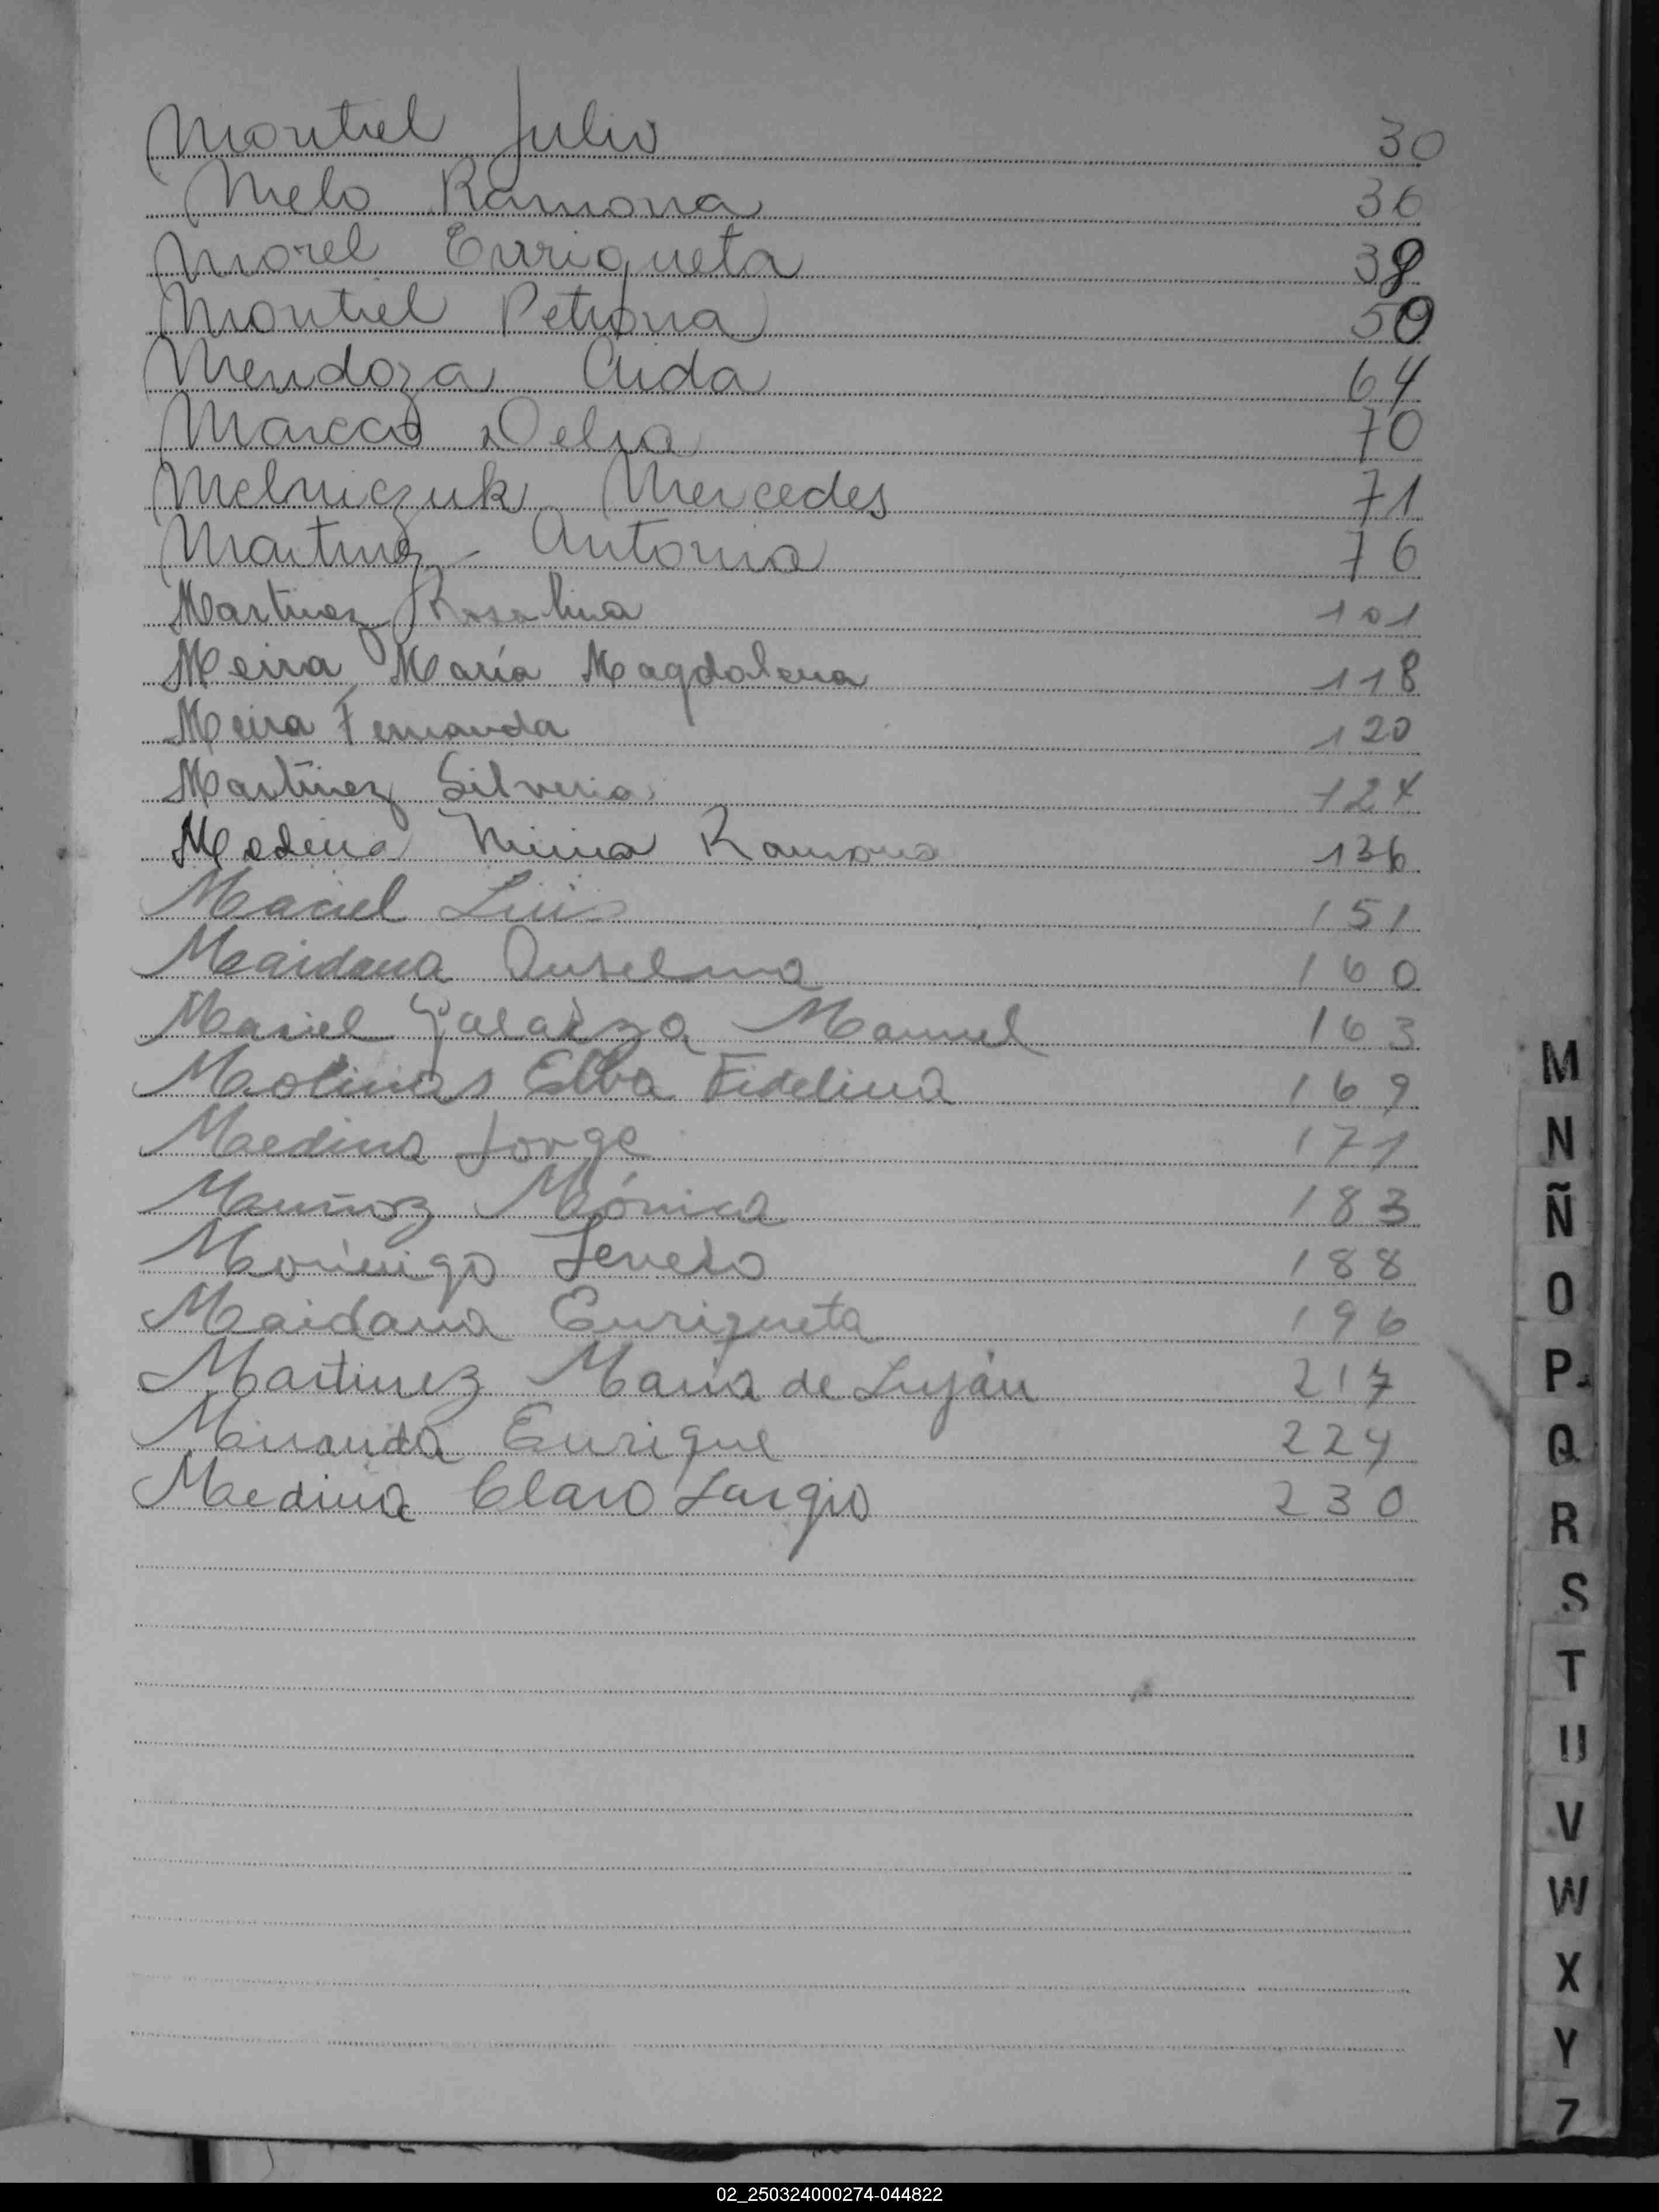 Montiel Julio 30
Melo Ramona 36
Morel Enriqueta 38
Montiel Petrona 50
Mendoza Aida 64
Marcos Delia 70
Melniczuk Mercedes 71
Martinez Antonia 76
Martinez Rosalina 101
Meira María Magdalena 118
Meira Fernanda 120
Martínez Silveria 124
Medina Ninia Ramona 136
Maciel Luis 151
Maidana Anselma 160
Maciel Galarza Manuel 163
Molinas Elba Fidelina 169
Medina Jorge 171
Muñoz Mónica 183
Morinigo 188
Maidana Enriqueta 196
Martinez María de Luján 217
Miranda Enrique 224
Medina Claro Sergio 230
M
N
Ñ
O
P
Q
R
S
T
U
V
W
X
Y
Z
02_250324000274-044822